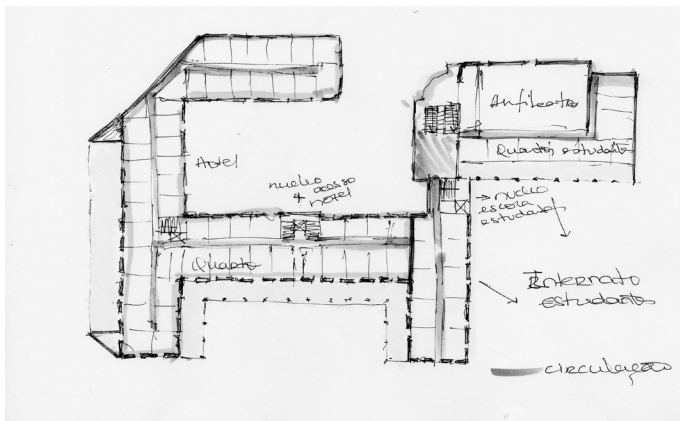 Anfiteatro
Quartos estudante
Hotel
nucleo
acesso
hotel
→ nucleo
escola
estudante
Quarto
Internato
estudantes
circulação